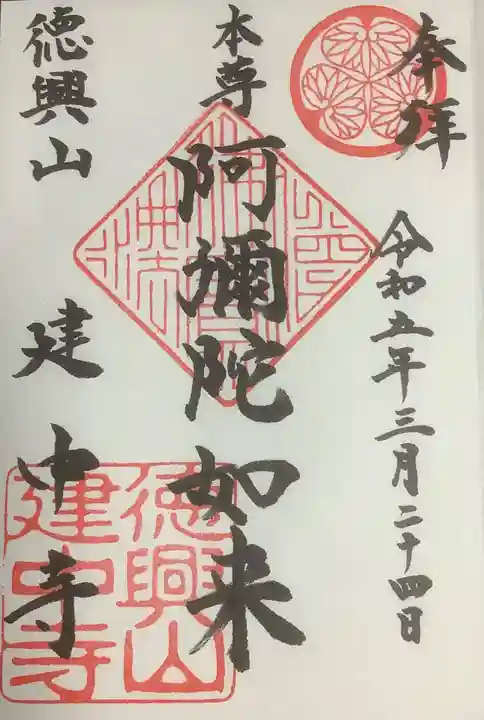 奉拝
令和五年三月二十四日
本尊
阿彌陀如来
徳興山
建中寺
徳興山
建中寺